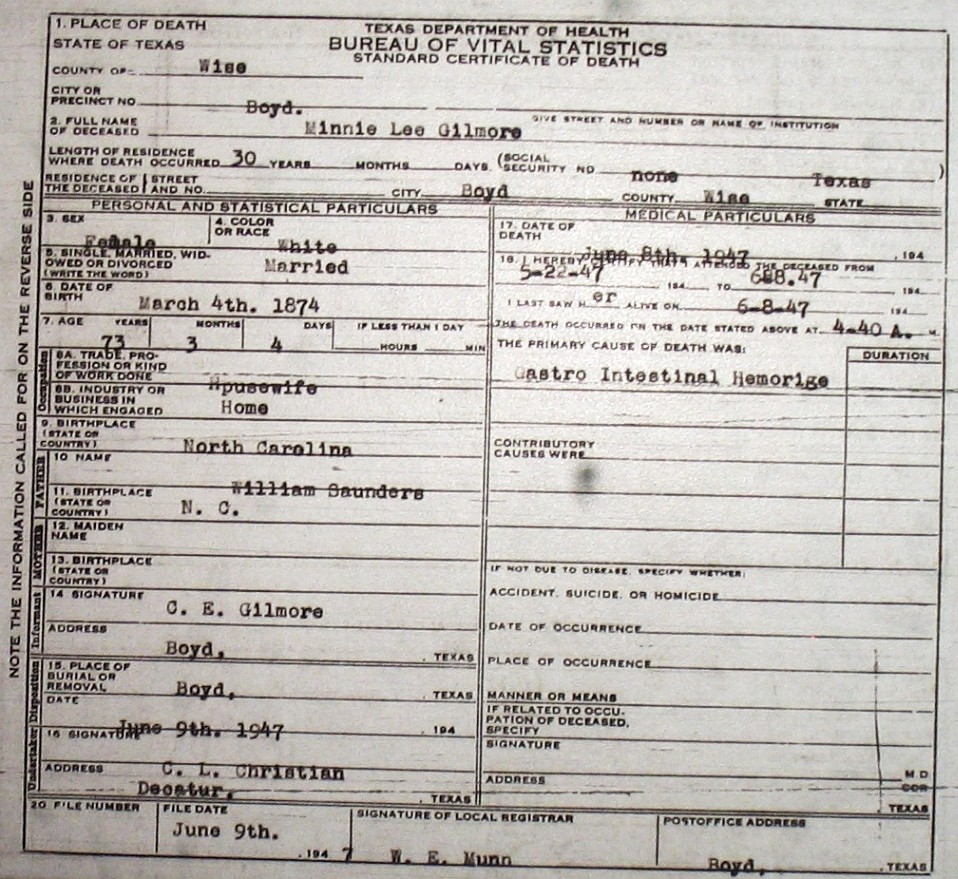 TEXAS DEPARTMENT OF HEALTH
BUREAU OF VITAL STATISTICS
STANDARD CERTIFICATE OF DEATH
NOTE THE INFORMATION CALLED FOR ON THE REVERSE SIDE
1. PLACE OF DEATH
STATE OF TEXAS
COUNTY OF Wise
CITY OR
PRECINCT NO. Boyd.
GIVE STREET AND NUMBER OR NAME OF INSTITUTION
2. FULL NAME
OF DECEASED Minnie Lee Gilmore
LENGTH OF RESIDENCE
WHERE DEATH OCCURRED 30 YEARS MONTHS DAYS. (SOCIAL
SECURITY NO. none )
RESIDENCE OF STREET
THE DECEASED AND NO. CITY Boyd COUNTY Wise STATE Texas
PERSONAL AND STATISTICAL PARTICULARS
3. SEX Female
4. COLOR
OR RACE White
5. SINGLE, MARRIED, WID-
OWED OR DIVORCED
(WRITE THE WORD) Married
6. DATE OF
BIRTH March 4th. 1874
7. AGE YEARS MONTHS DAYS IF LESS THAN 1 DAY
73 3 4 HOURS MIN
Occupation
8A. TRADE, PRO-
FESSION OR KIND
OF WORK DONE Hpusewife
8B. INDUSTRY OR
BUSINESS IN
WHICH ENGAGED Home
9. BIRTHPLACE
(STATE OR
COUNTRY) North Carolina
FATHER
10 NAME William Saunders
11. BIRTHPLACE
(STATE OR
COUNTRY) N. C.
MOTHER
12. MAIDEN
NAME
13. BIRTHPLACE
(STATE OR
COUNTRY)
Informant
14 SIGNATURE C. E. Gilmore
ADDRESS
Boyd, , TEXAS
Disposition
15. PLACE OF
BURIAL OR
REMOVAL Boyd, , TEXAS
DATE
June 9th. 1947 , 194
Undertaker
16 SIGNATURE
C. L. Christian
ADDRESS
Decatur, , TEXAS
MEDICAL PARTICULARS
17. DATE OF
DEATH June 8th. 1947 , 194
18. I HEREBY CERTIFY THAT I ATTENDED THE DECEASED FROM
5-22-47 194 TO 6-8.47 194
I LAST SAW H er ALIVE ON 6-8-47 194
THE DEATH OCCURRED ON THE DATE STATED ABOVE AT 4-40 A. M.
THE PRIMARY CAUSE OF DEATH WAS: DURATION
Gastro Intestinal Hemorige
CONTRIBUTORY
CAUSES WERE
IF NOT DUE TO DISEASE, SPECIFY WHETHER:
ACCIDENT, SUICIDE, OR HOMICIDE
DATE OF OCCURRENCE
PLACE OF OCCURRENCE
MANNER OR MEANS
IF RELATED TO OCCU-
PATION OF DECEASED,
SPECIFY
SIGNATURE
M.D
COR
ADDRESS
TEXAS
20. FILE NUMBER
FILE DATE
June 9th.
, 194 7
SIGNATURE OF LOCAL REGISTRAR
W. E. Munn
POSTOFFICE ADDRESS
Boyd, , TEXAS